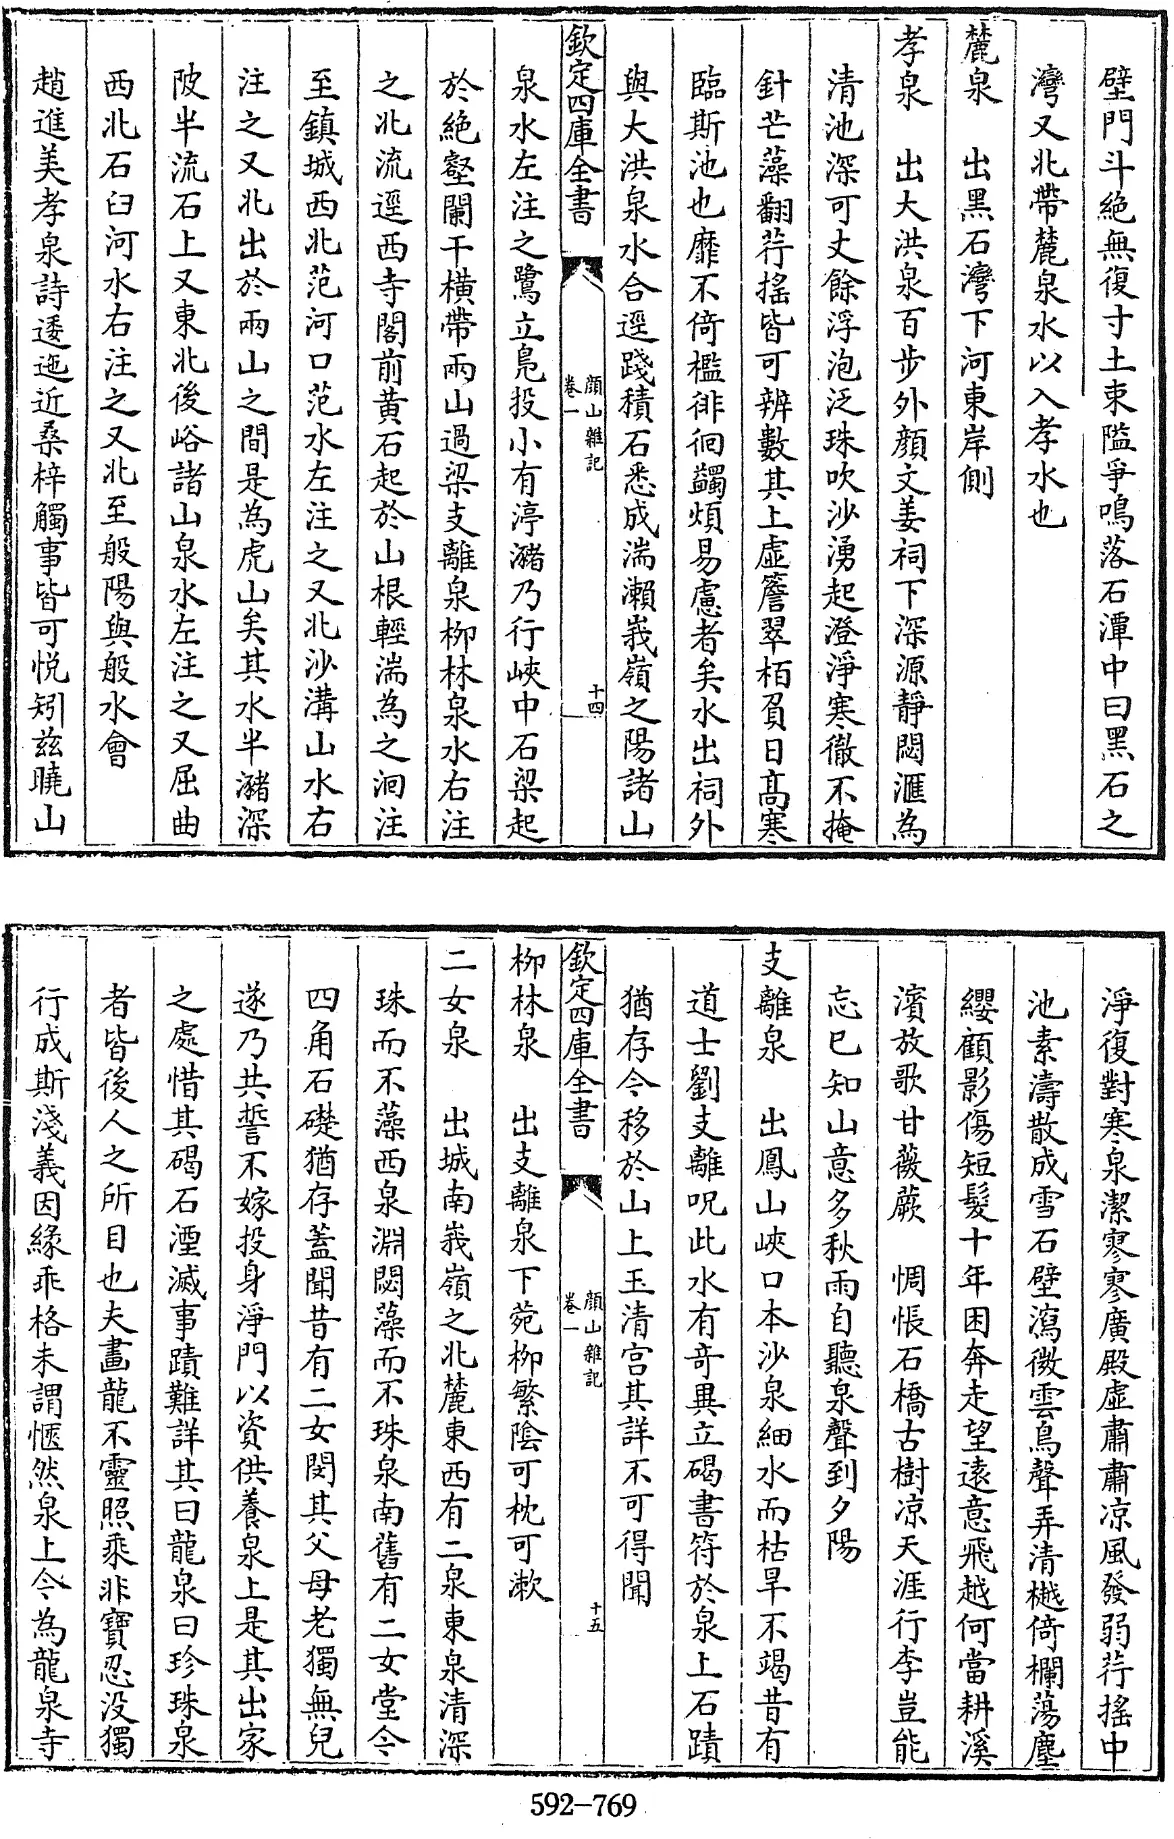 壁門斗絶無復寸土束隘爭鳴落石潭中曰黑石之
灣又北帶麓泉水以入孝水也
麓泉　出黑石灣下河東岸側
孝泉　出大洪泉百步外顔文姜祠下深源靜閟滙為
清池深可丈餘浮泡泛珠吹沙湧起澄淨寒徹不掩
針芒藻翻荇搖皆可辨數其上虛簷翠栢負日高寒
臨斯池也靡不倚檻徘徊蠲煩易慮者矣水出祠外
與大洪泉水合逕踐積石悉成湍瀨峩嶺之陽諸山
欽定四庫全書
顔山雜記
卷一
十四
泉水左注之鷺立鳬投小有渟瀦乃行峽中石梁起
於絶壑闌干横帶兩山過梁支離泉栁林泉水右注
之北流逕西寺閣前黄石起於山根輕湍為之洄注
至鎮城西北范河口范水左注之又北沙溝山水右
注之又北出於兩山之間是為虎山矣其水半瀦深
陂半流石上又東北後峪諸山泉水左注之又屈曲
西北石臼河水右注之又北至般陽與般水會
趙進美孝泉詩逶迤近桑梓觸事皆可悦矧兹曉山
淨復對寒泉潔寥寥廣殿虛肅肅凉風發弱荇搖中
池素濤散成雪石壁瀉微雲鳥聲弄清樾倚欄蕩塵
纓顧影傷短髮十年困奔走望遠意飛越何當耕溪
濱放歌甘薇蕨　惆悵石橋古樹凉天涯行李豈能
忘已知山意多秋雨自聽泉聲到夕陽
支離泉　出鳳山峽口本沙泉細水而枯旱不竭昔有
道士劉支離呪此水有奇異立碣書符於泉上石蹟
猶存今移於山上玉清宫其詳不可得聞
欽定四庫全書
顔山雜記
卷一
十五
栁林泉　出支離泉下菀栁繁陰可枕可漱
二女泉　出城南峩嶺之北麓東西有二泉東泉清深
珠而不藻西泉淵閟藻而不珠泉南舊有二女堂今
四角石礎猶存蓋聞昔有二女閔其父母老獨無兒
遂乃共誓不嫁投身淨門以資供養泉上是其出家
之處惜其碣石湮滅事蹟難詳其曰龍泉曰珍珠泉
者皆後人之所目也夫畫龍不靈照乘非寶忍没獨
行成斯淺義因緣乖格未謂愜然泉上今為龍泉寺
592-769